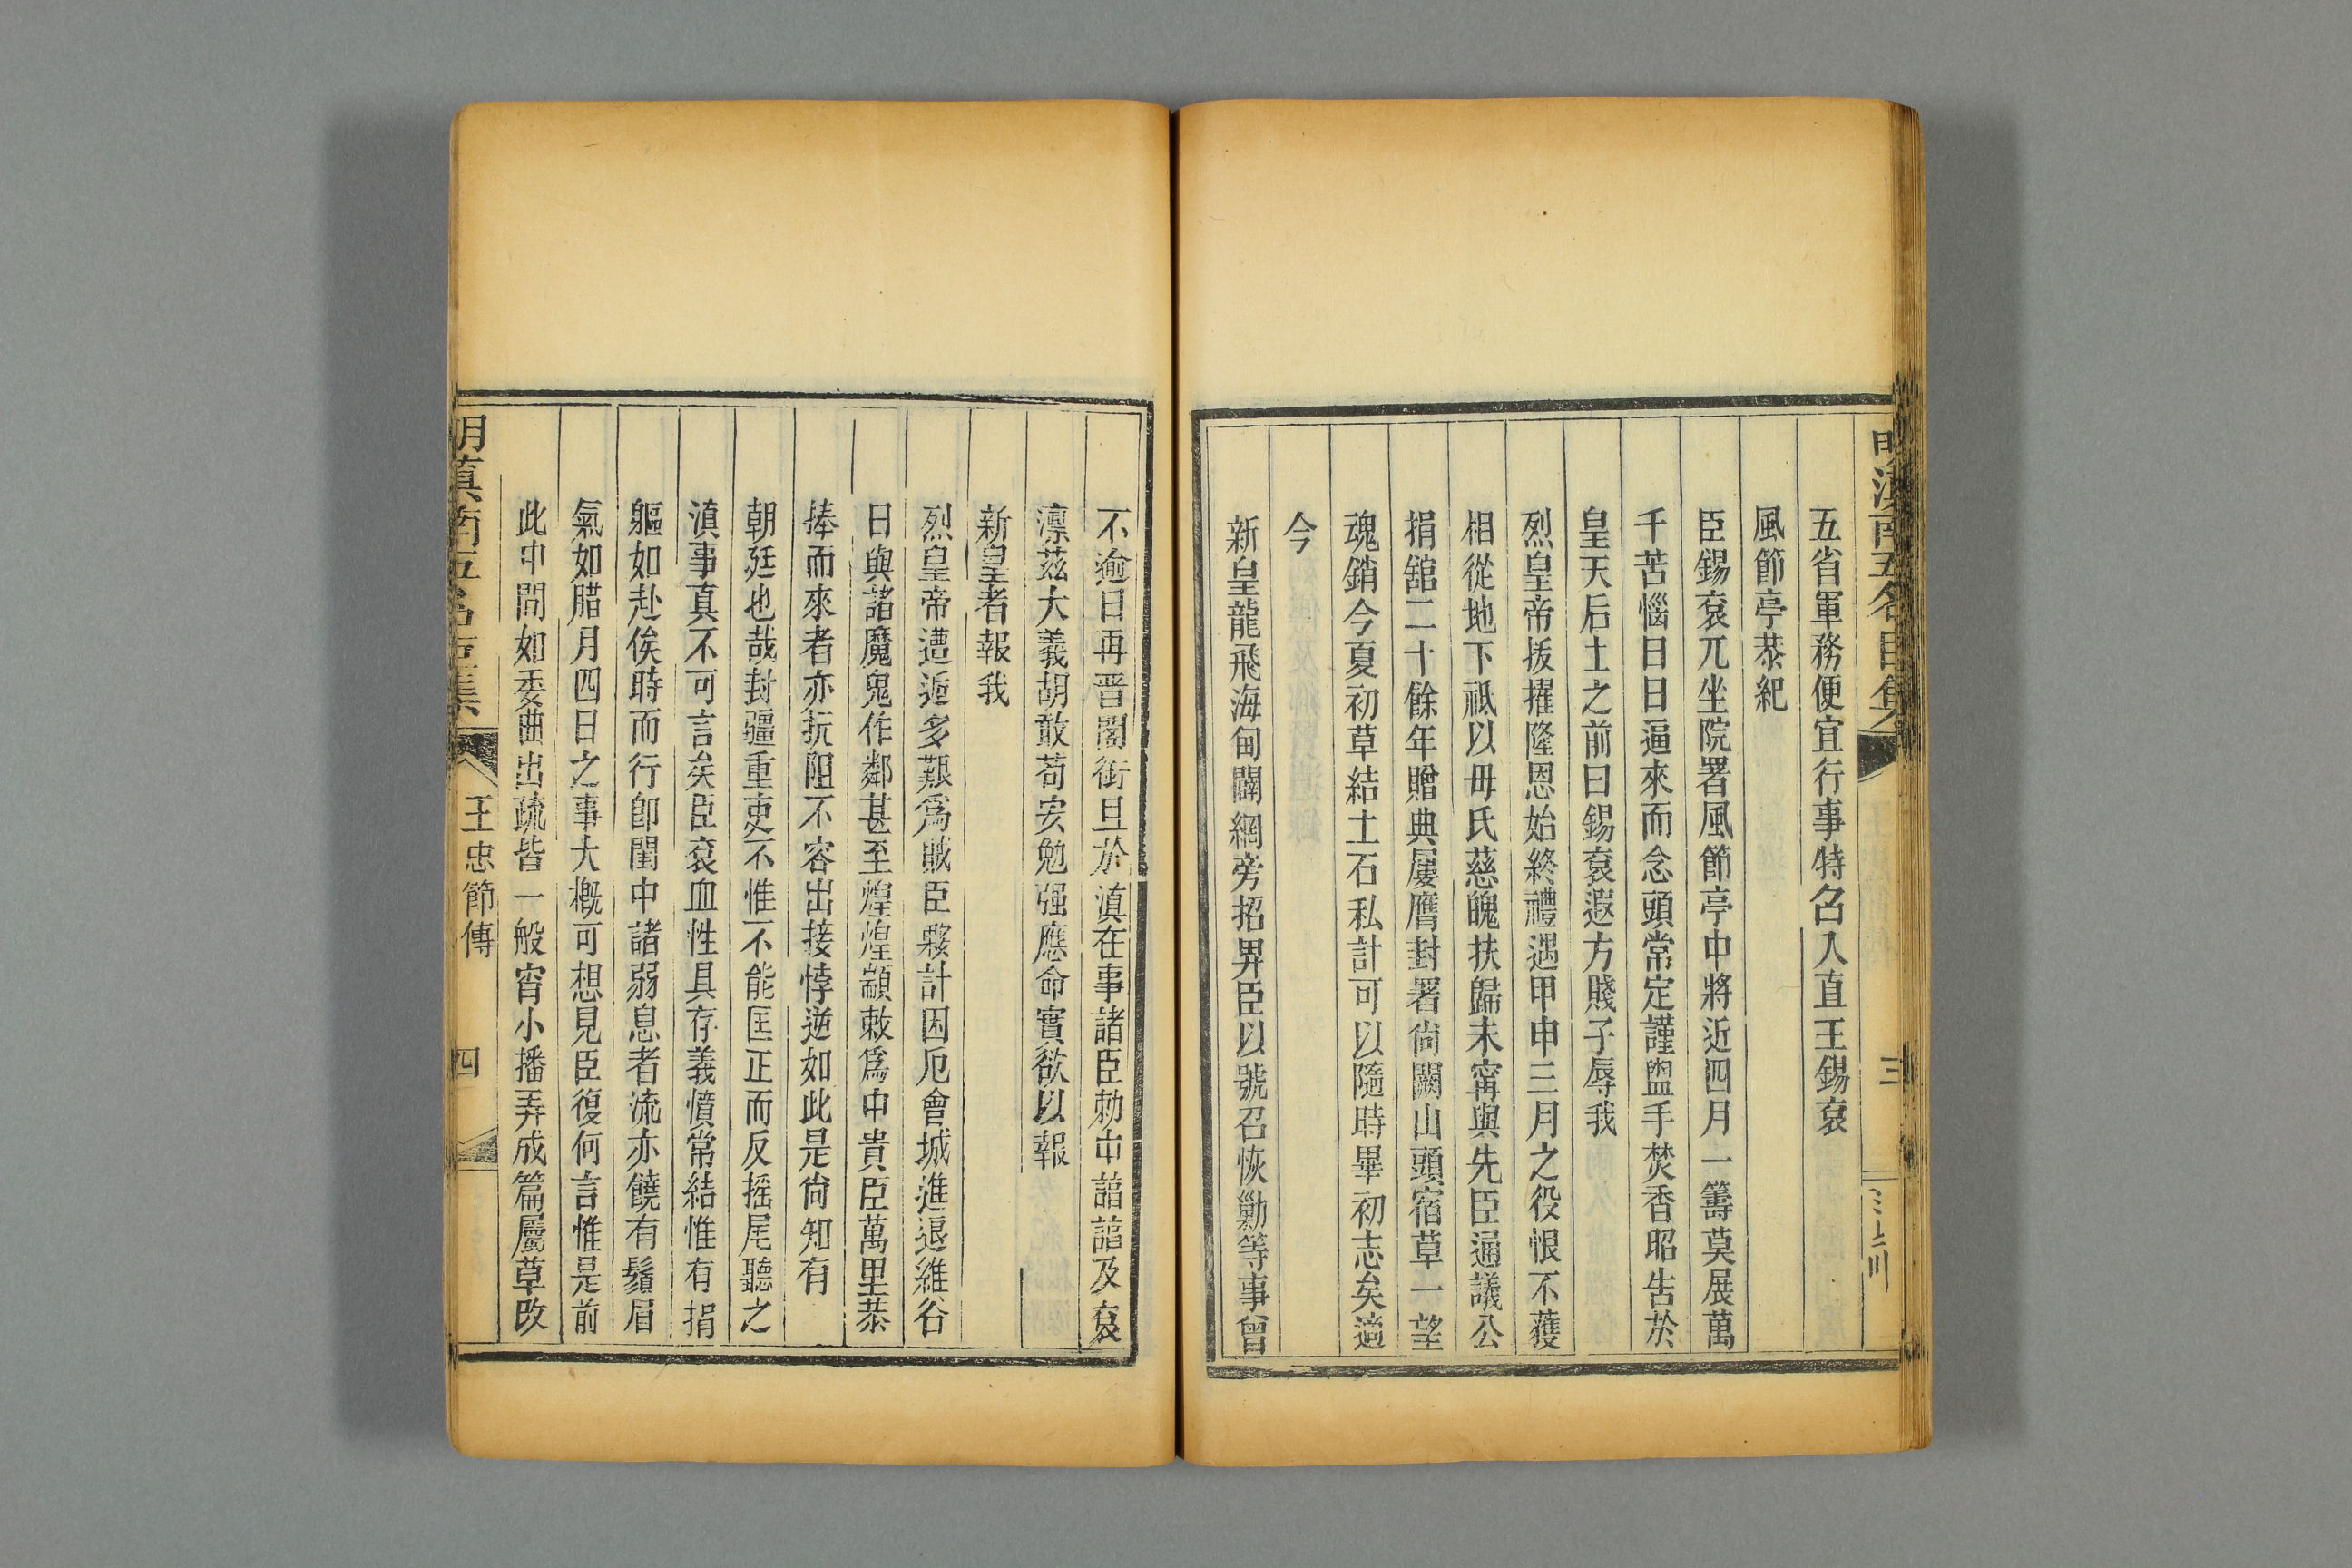 五省軍務便宜行事特名入直王錫袞
風節亭恭紀
臣錫袞兀坐院署風節亭中將近四月一籌莫展萬
千苦惱日日逼來而念頭常定謹盥手焚香昭告於
皇天后土之前曰錫袞遐方賤子辱我
烈皇帝拔擢隆恩始終禮遇甲申三月之役恨不獲
相從地下祗以毋氏慈魄扶歸未甯與先臣通議公
捐舘二十餘年贈典屢膺封署尙闕山頭宿草一望
魂銷今夏初草結土石私計可以隨時畢初志矣適
今
新皇龍飛海甸闢網旁招畀臣以號召恢勦等事曾
不逾日再晋閣銜且於滇在事諸臣勅中諳諳及袞
凛茲大義胡敢苟安勉强應命實欲以報
新皇者報我
烈皇帝遭逅多艱爲賊臣夥計困厄會城進退維谷
日與諸魔鬼作鄰甚至煌煌顓敕爲中貴臣萬里恭
捧而來者亦抗阻不容出接悖逆如此是尙知有
朝廷也哉封疆重吏不惟不能匡正而反摇尾聽之
滇事真不可言矣臣袞血性具存義憤常結惟有捐
軀如赴俟時而行卽閨中諸弱息者流亦饒有鬚眉
氣如腊月四日之事大槪可想見臣復何言惟是前
此中間如委曲出疏皆一般宵小播弄成篇屬草改
明滇南五名臣集
王忠節傳
四
明滇南五名臣集
三